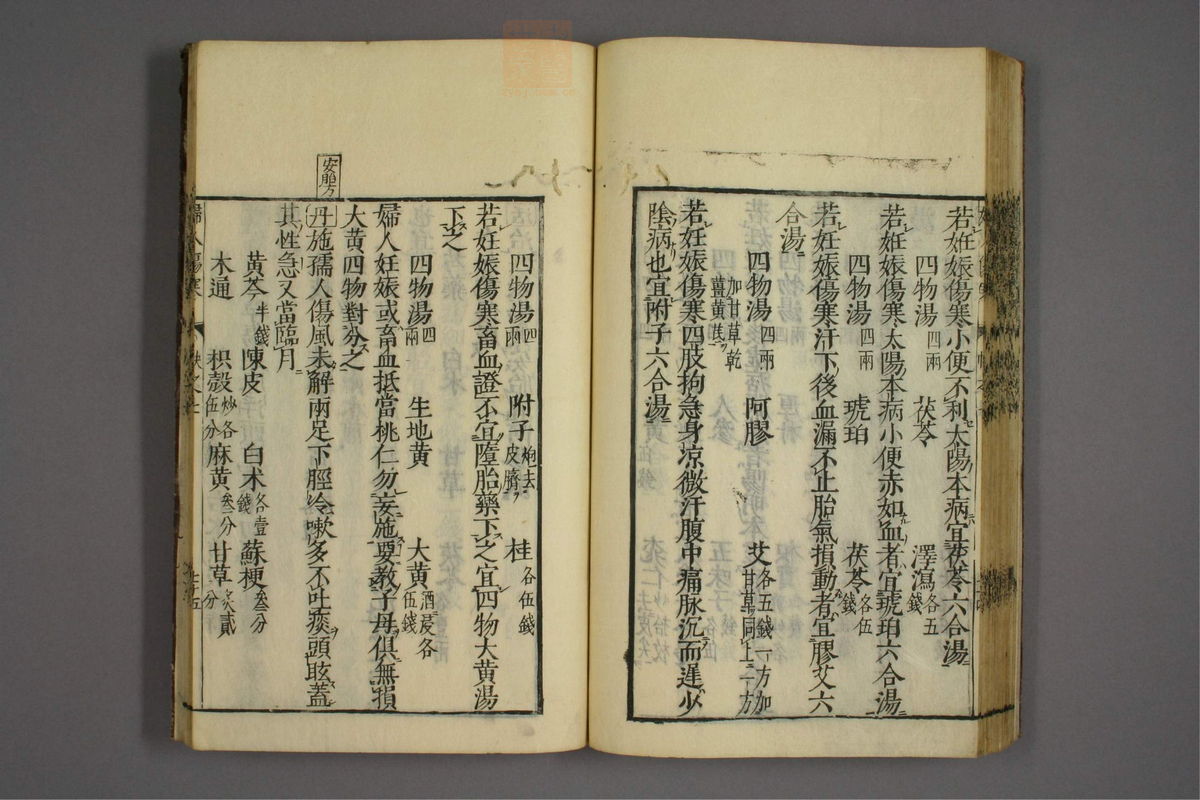 若妊娠傷寒小便不利太陽本病宜茯苓六合湯
四物湯四兩 茯苓 澤瀉各五錢
若妊娠傷寒太陽本病小便赤如血者宜琥珀六合湯
四物湯四兩 琥珀 茯苓各伍錢
若妊娠傷寒汗下後血漏不止胎氣損動者宜膠艾六
合湯
四物湯四兩 阿膠 艾各五錢一方加甘草同上一方
加甘草乾薑黃芪
若妊娠傷寒四肢拘急身凉微汗腹中痛脉沉而遲少
陰病也宜附子六合湯
四物湯四兩 附子炮去皮臍 桂各伍錢
若妊娠傷寒畜血證不宜墮胎藥下之宜四物大黃湯
下之
四物湯四兩 生地黃 大黃酒浸各伍錢
婦人妊娠或畜血抵當桃仁勿妄施要教子母俱無損
大黃四物對分之
安胎方
丹施孺人傷風未解兩足下脛冷嗽多不吐痰頭眩蓋
其性急又當臨月
黃芩半錢 陳皮 白朮各壹錢 蘇梗叁分
木通 枳殼炒各伍分 麻黃叁分 甘草炙貳分
婦人傷寒